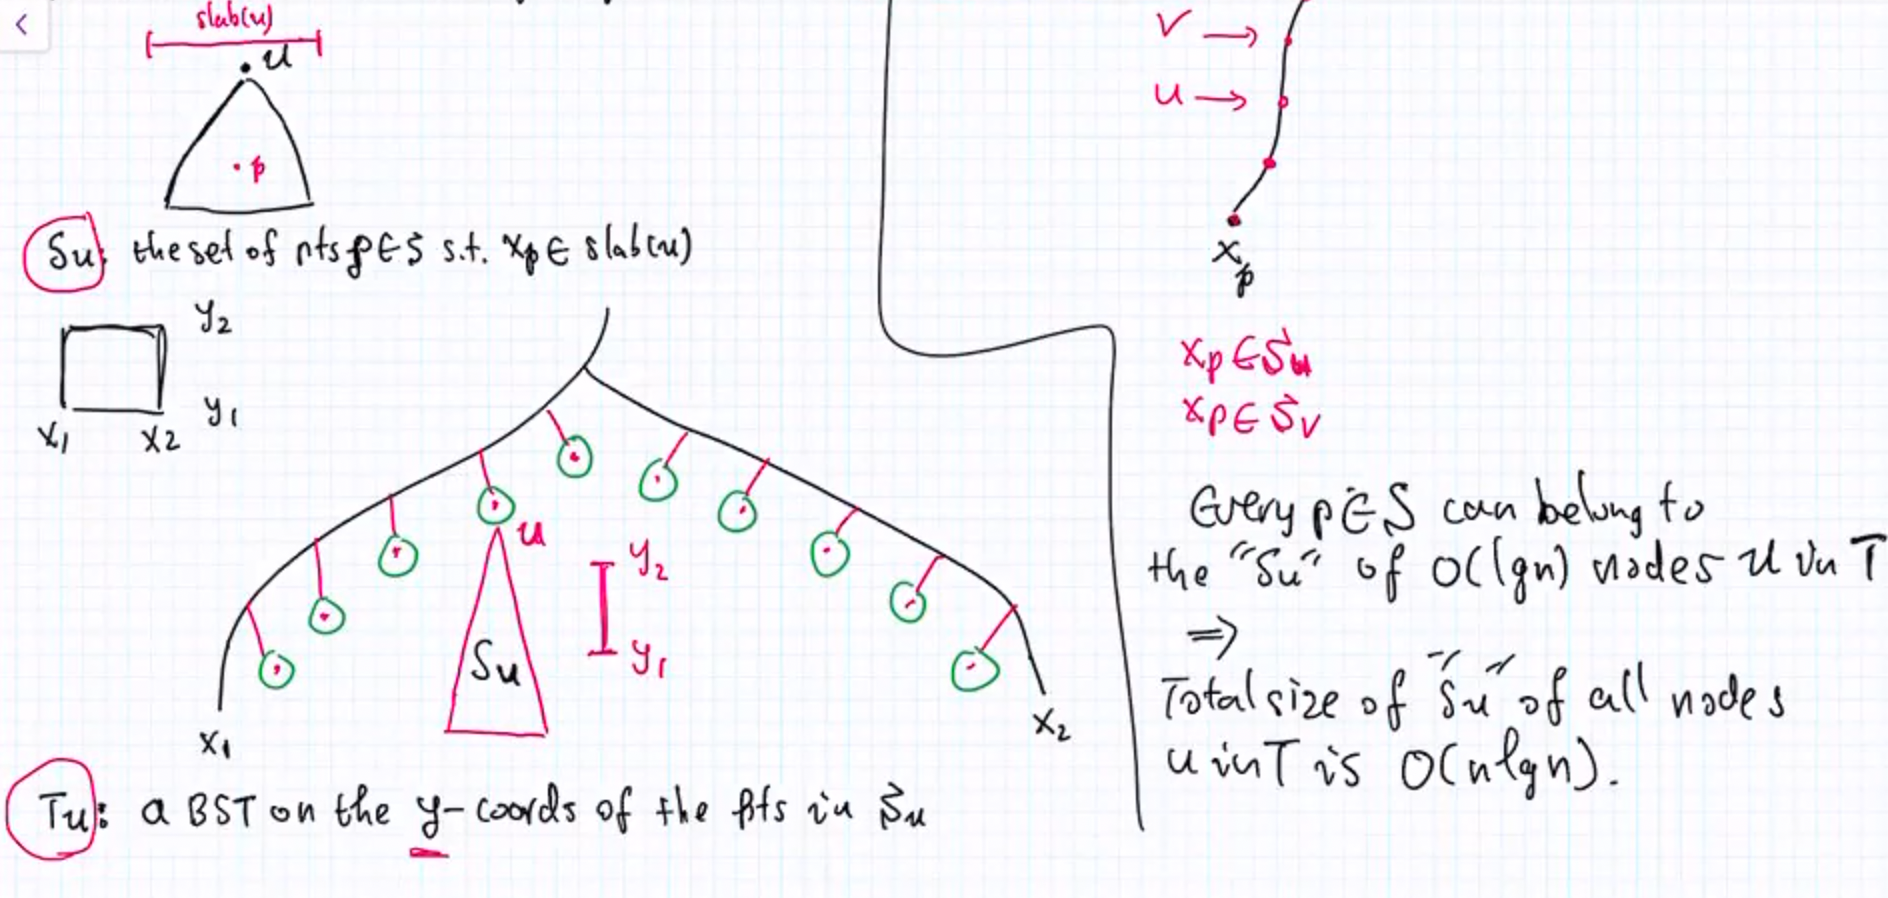 slab(u)
u
p
Su: the set of pts p∈S s.t. xp ∈ slab(u)
y2
y1
x1 x2
u
y2
Su
y1
x1
x2
Tu: a BST on the y-coords of the pts in Su
v →
u →
xp
xp ∈ Su
xp ∈ Sv
Every p∈S can belong to
the "Su" of O(lgn) nodes u in T
⇒
Total size of "Su" of all nodes
u in T is O(nlgn).